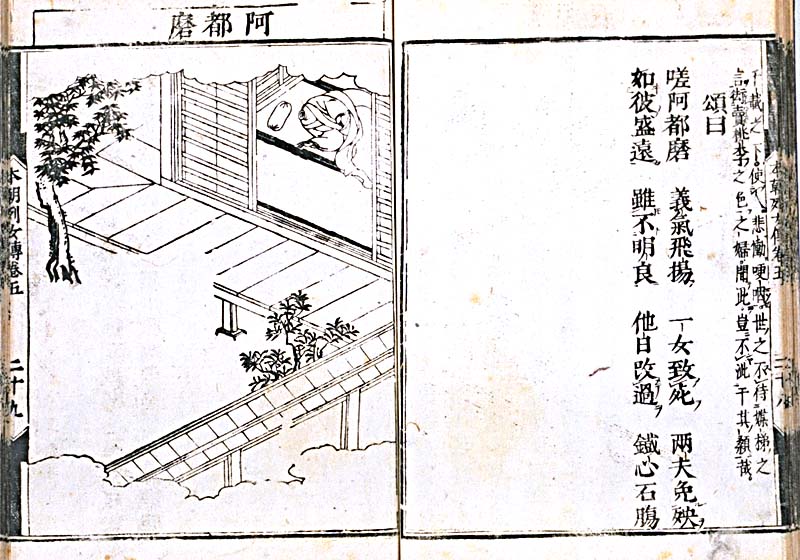 千載之下使人悲慟哽咽世之不待媒梯之
言衒賣桃李之色之婦聞此豈不泚于其顙哉
頌曰
嗟阿都磨 義氣飛揚 一女致死 兩夫免殃
如彼盛遠 雖不明良 他日改過 鐵心石膓
本朝列女傳卷五
二十八
阿都磨
本朝列女傳卷五
二十九